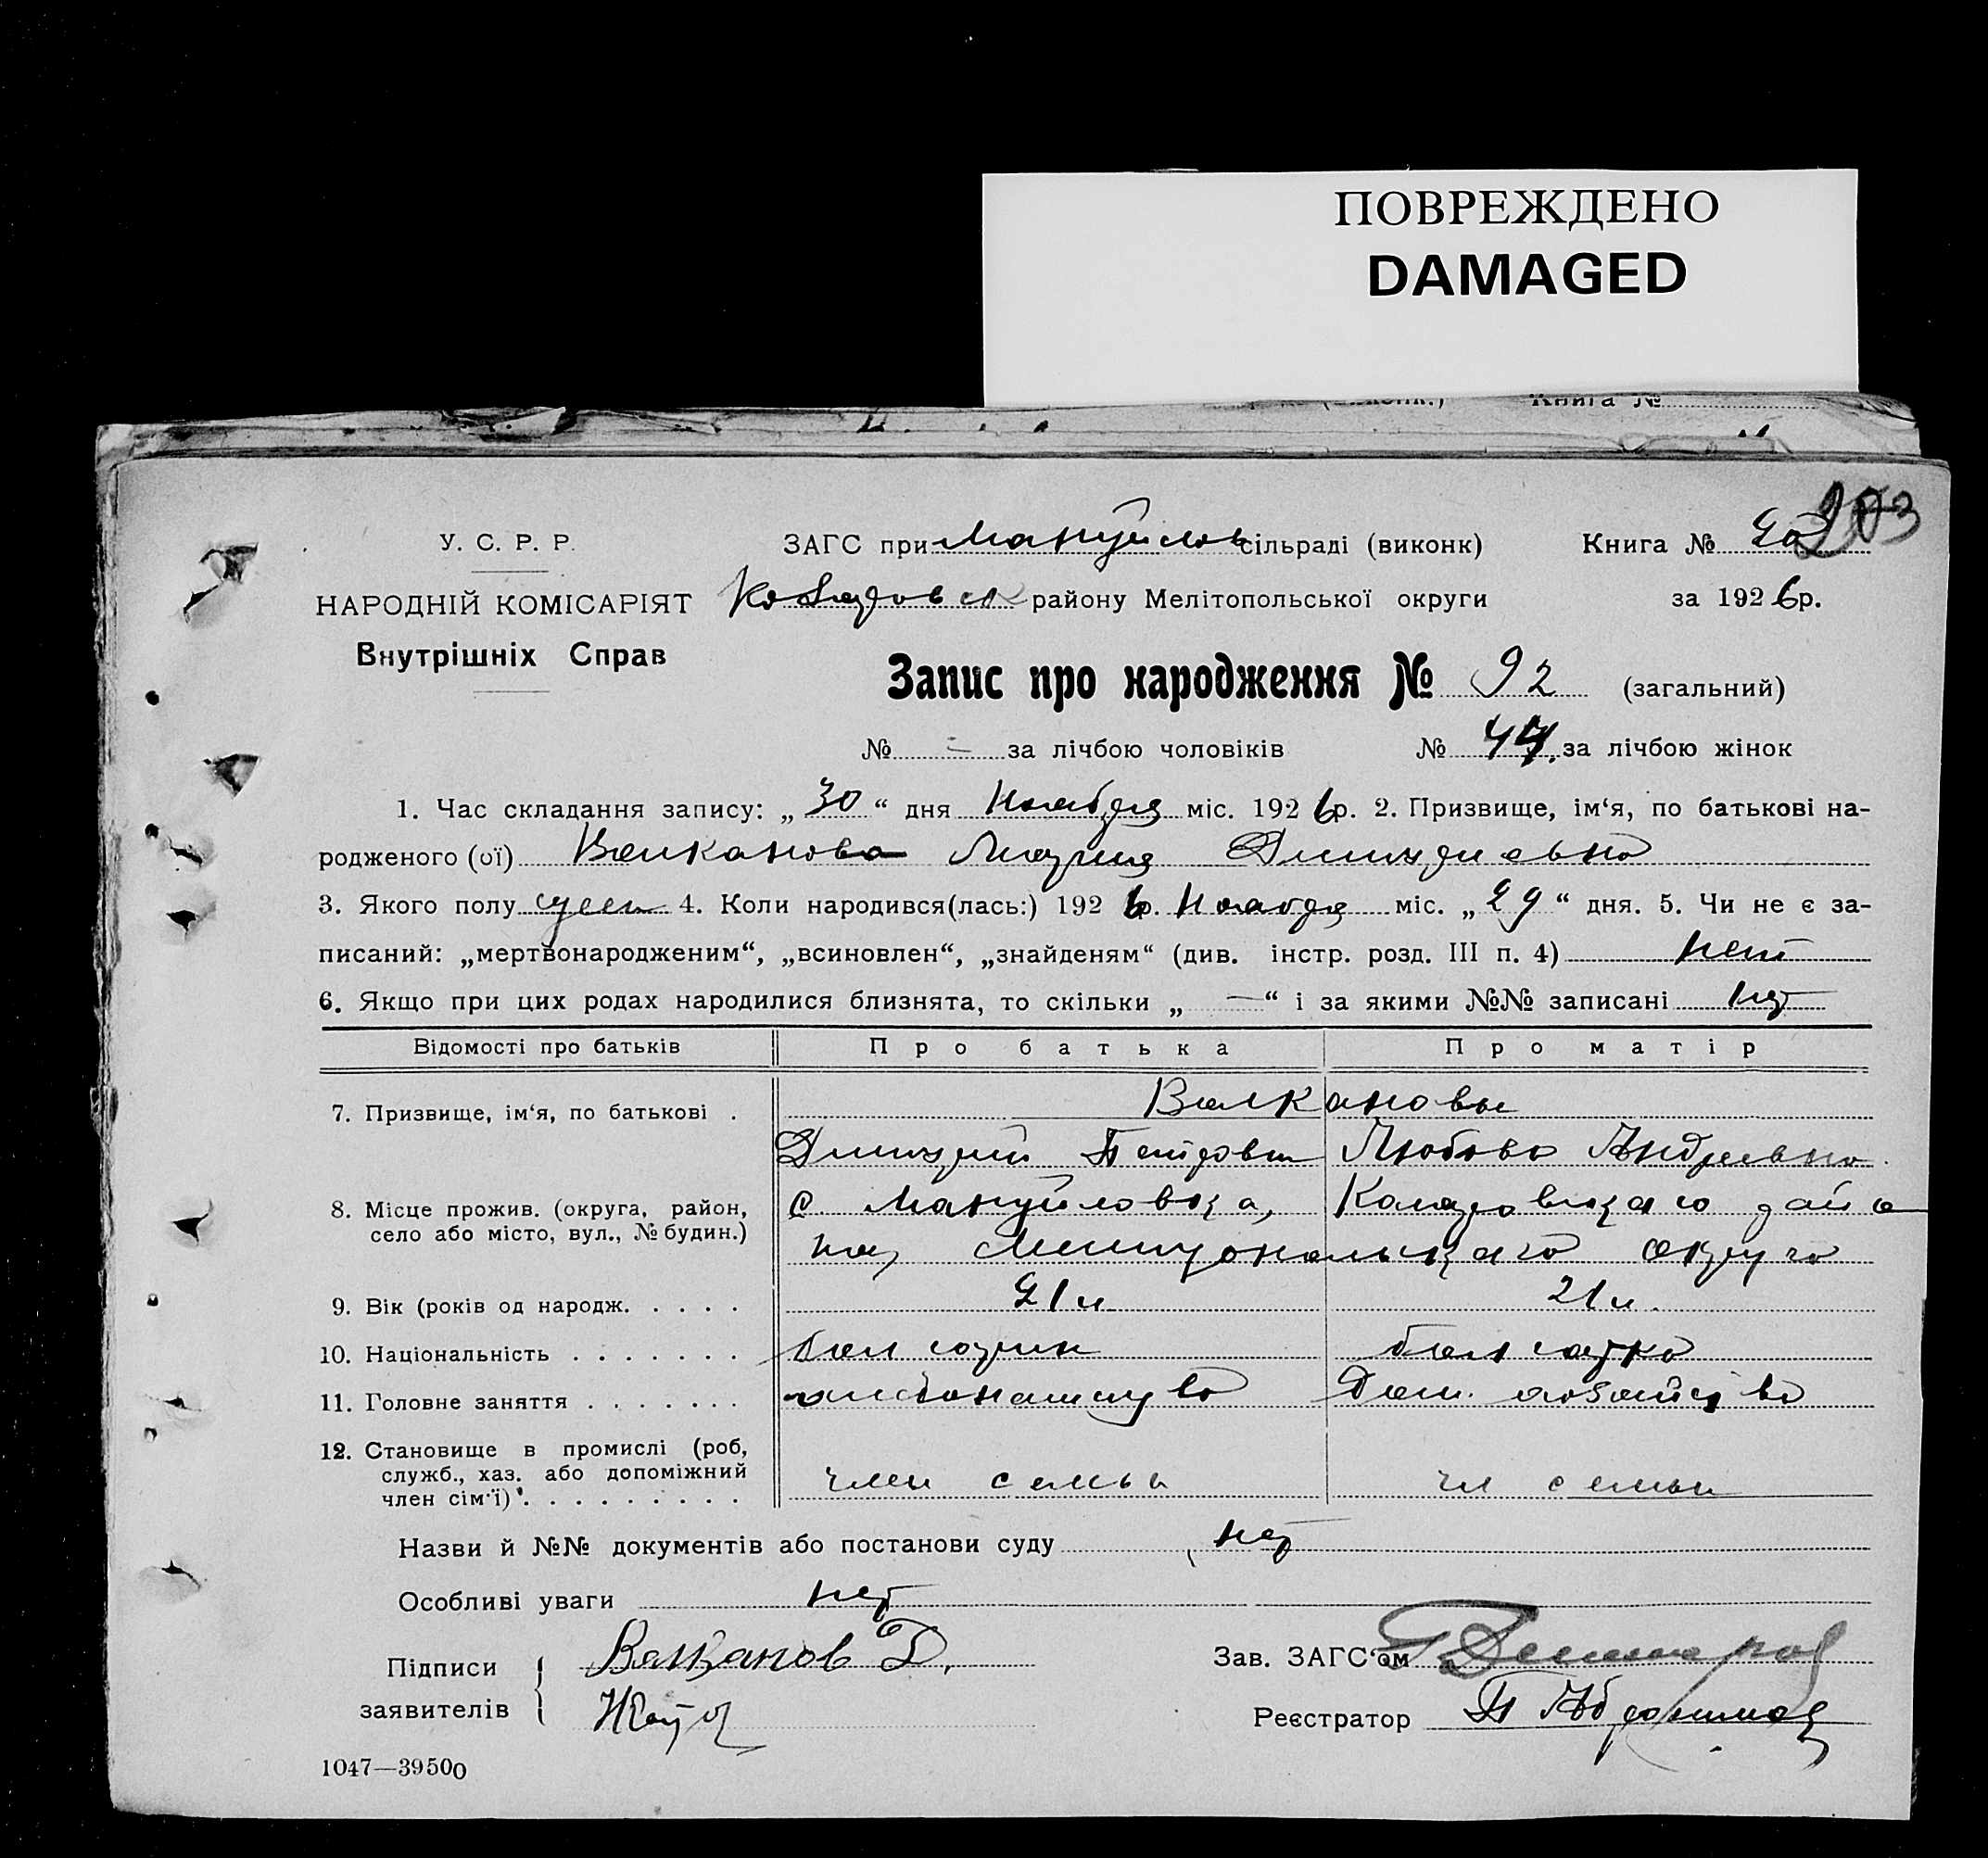 ПОВРЕЖДЕНО
DAMAGED
Книга №
203
У. С. Р. Р. ЗАГС при Мануйлов сільраді (виконк) Книга №
НАРОДНІЙ КОМІСАРІЯТ району Мелітопольської округи за 1926 р.
Внутрішніх Справ
Запис про народження № 92 (загальний)
№ - за лічбою чоловіків № 44. за лічбою жінок
1. Час складання запису: „30“ дня Ноября міс. 1926 р. 2. Призвище, ім‘я, по батькові на-
родженого (ої) Волканова Мария Дмитриевна
3. Якого полу 4. Коли народився(лась:) 1926 р. Ноября міс. „29“ дня. 5. Чи не є за-
писаний: „мертвонародженим“, „всиновлен“, „знайденям“ (див. інстр. розд. III п. 4) нет
6. Якщо при цих родах народилися близнята, то скільки „ — “ і за якими №№ записані нет
Відомості про батьків Про батька Про матір
7. Призвище, ім‘я, по батькові . Волкановы
Дмитрий Петрович Любовь Андреевна
8. Місце прожив. (округа, район, с. Мануйловка, Коларовского райо
село або місто, вул., № будин.)
на, Мелитопольского округа
9. Вік (років од народж. . . . . 21 21
10. Національність . . . . . . . болгарин болгарка
11. Головне заняття . . . . . . . хлебопашество Дом. хозяйство
12. Становище в промислі (роб,
служб., хаз. або допоміжний член семьи чл семьи
член сім‘ї) . . . . . . . . .
Назви й №№ документів або постанови суду нет
Особливі уваги нет
Підписи Волканов Д. Зав. ЗАГС‘ом
заявителів Реєстратор
1047—39500